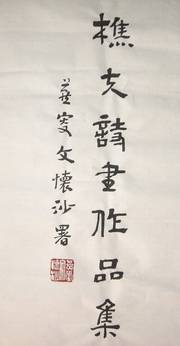 樵夫詩書作品集
燕叟文懷沙署